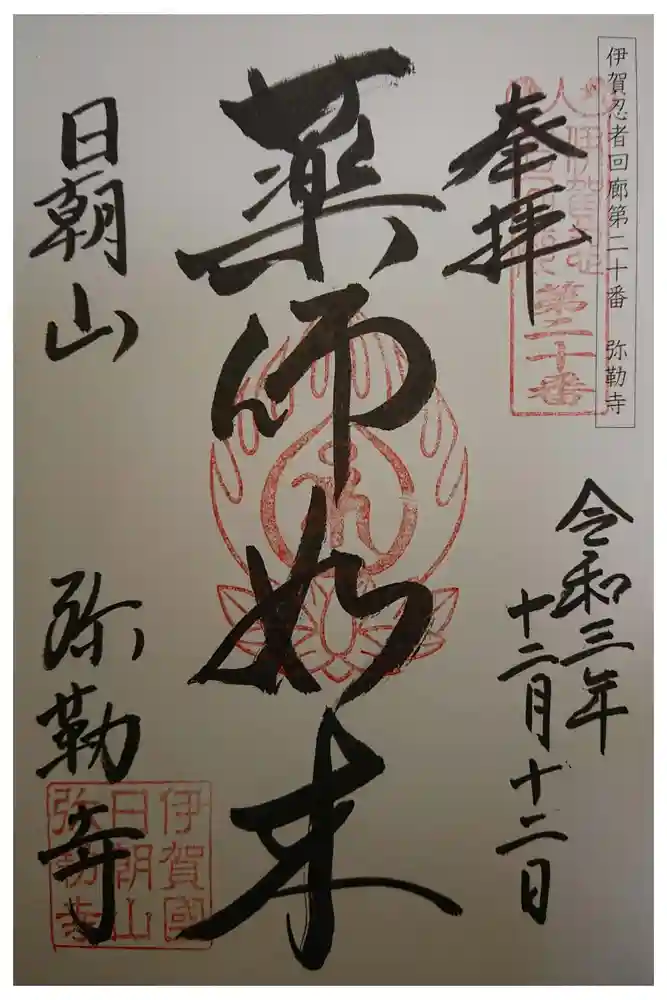 伊賀忍者回廊第二十番 弥勒寺
奉拝
第二十番
令和三年
十二月十二日
薬師如来
日朝山 弥勒寺
伊賀國
日朝山
弥勒寺